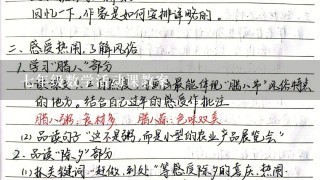 回忆一下,作家是如何安排详略的。
二、感受热闹,了解风俗
1.学习“腊八”部分
最能体现“腊八节”风俗特点
的地方。结合自己过年的感受作批注
腊八粥:食材多 腊八蒜:色味双美
(2)品读句子“这不是粥,而是小型的农业产品展览会”
2.品读“除夕”部分
(1)抓关键词“赶做、到处”等感受除夕的喜庆、热闹.
七年级数学活动课教案